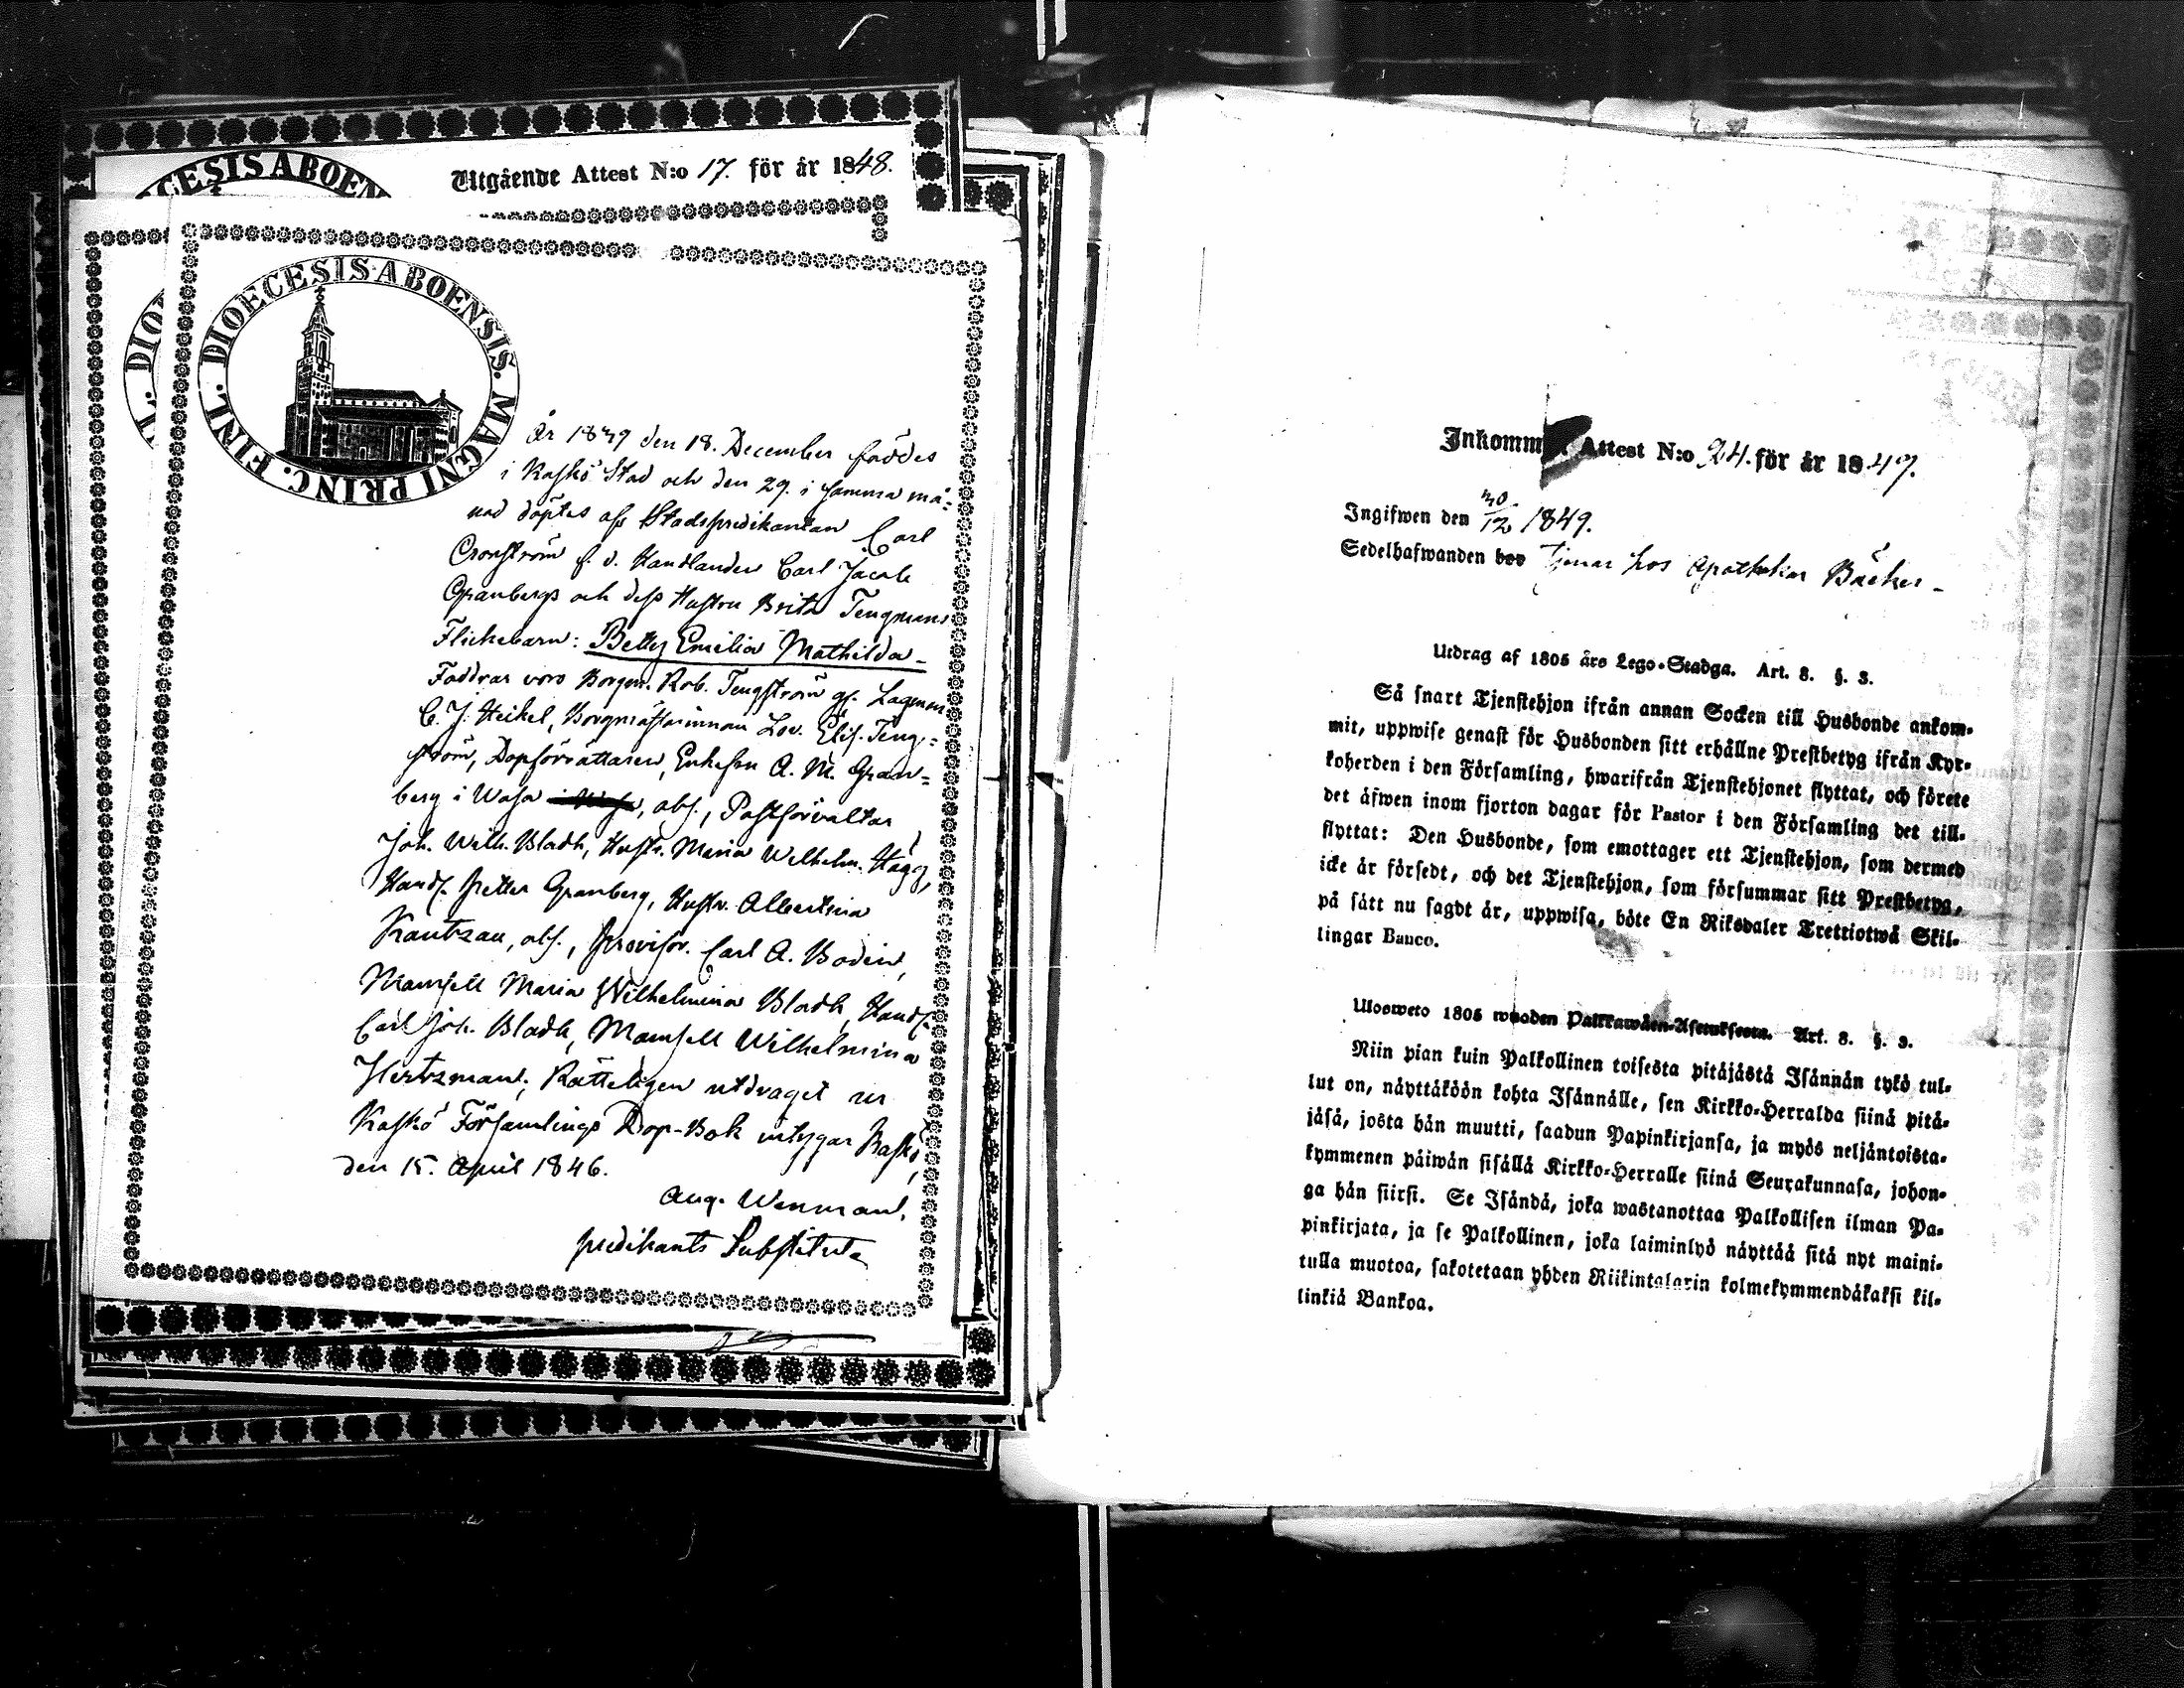 Utgående Attest N:o 17. för år 1848.
DIOECESIS ABOENSIS. MAGNI PRINC. FINL.
År 1839 den 18. December föddes
i Kaskö Stad och den 29. i samma må=
nad döptes af Stadspredikanten Carl
Cronström f. d. Handlanden Carl Jacob
Granbergs och dess Hustru Brita Tengmans
Flickebarn: Betty Emilia Mathilda_
Faddrar voro Borgm. Rob. Tengström gf. Lagman
C. J. Heikel, Borgmästarinnan Lov. Elis. Teng=
ström, Dopförrättaren, Enkefru A. M. Gran=
berg i Wasa, abs., Postförvaltar
Joh. Wilh. Bladh, Hustr. Maria Wilhelm. Hägg,
Handl. Petter Granberg, Hustr. Albertina
Kautzau, abs., Provisor. Carl A. Bodin,
Mamsell Maria Wilhelmina Bladh, Handl.
Carl Joh. Bladh, Mamsell Wilhelmina
Hertzman; Rätteligen utdraget ur
Kaskö Församlings Dop-Bok intygar Kaskö,
den 15. April 1846.
Aug. Wenman,
predikants Substitut
Inkomm Attest N:o 24. för år 1849.
Ingifwen den 30/12 1849.
Sedelhafwanden bor Tjenar hos Apothekar Bäcker_
Utdrag af 1805 års Lego-Stadga. Art. 8. §. 3.
Så snart Tjenstehjon ifrån annan Socken till Husbonde ankom-
mit, uppwise genast för Husbonden sitt erhållne Prestbetyg ifrån Kyr-
koherden i den Församling, hwarifrån Tjenstehjonet flyttat, och förete
det äfwen inom fjorton dagar för Pastor i den Församling det till-
flyttat: Den Husbonde, som emottager ett Tjenstehjon, som dermed
icke är försedt, och det Tjenstehjon, som försummar sitt Prestbetyg,
på sätt nu sagdt är, uppwisa, böte En Riksdaler Trettiotwå Skil-
lingar Banco.
Ulosweto 1805 wuoden Palkkawäen-Asetuksesta. Art. 8. §. 3.
Niin pian kuin Palkollinen toisesta pitäjästä Isännän tykö tul-
lut on, näyttäköön kohta Isännälle, sen Kirkko-Herralda siinä pitä-
jäsä, josta hän muutti, saadun Papinkirjansa, ja myös neljäntoista-
kymmenen päiwän sisällä Kirkko-Herralle siinä Seurakunnasa, johon-
ga hän siirsi. Se Isändä, joka wastanottaa Palkollisen ilman Pa-
pinkirjata, ja se Palkollinen, joka laiminlyö näyttää sitä nyt maini-
tulla muotoa, sakotetaan yhden Riikintalarin kolmekymmendäkaksi kil-
linkiä Bankoa.